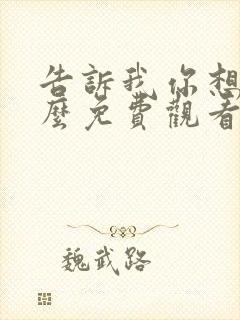 告訴我你想
麼免費觀看
魏武路